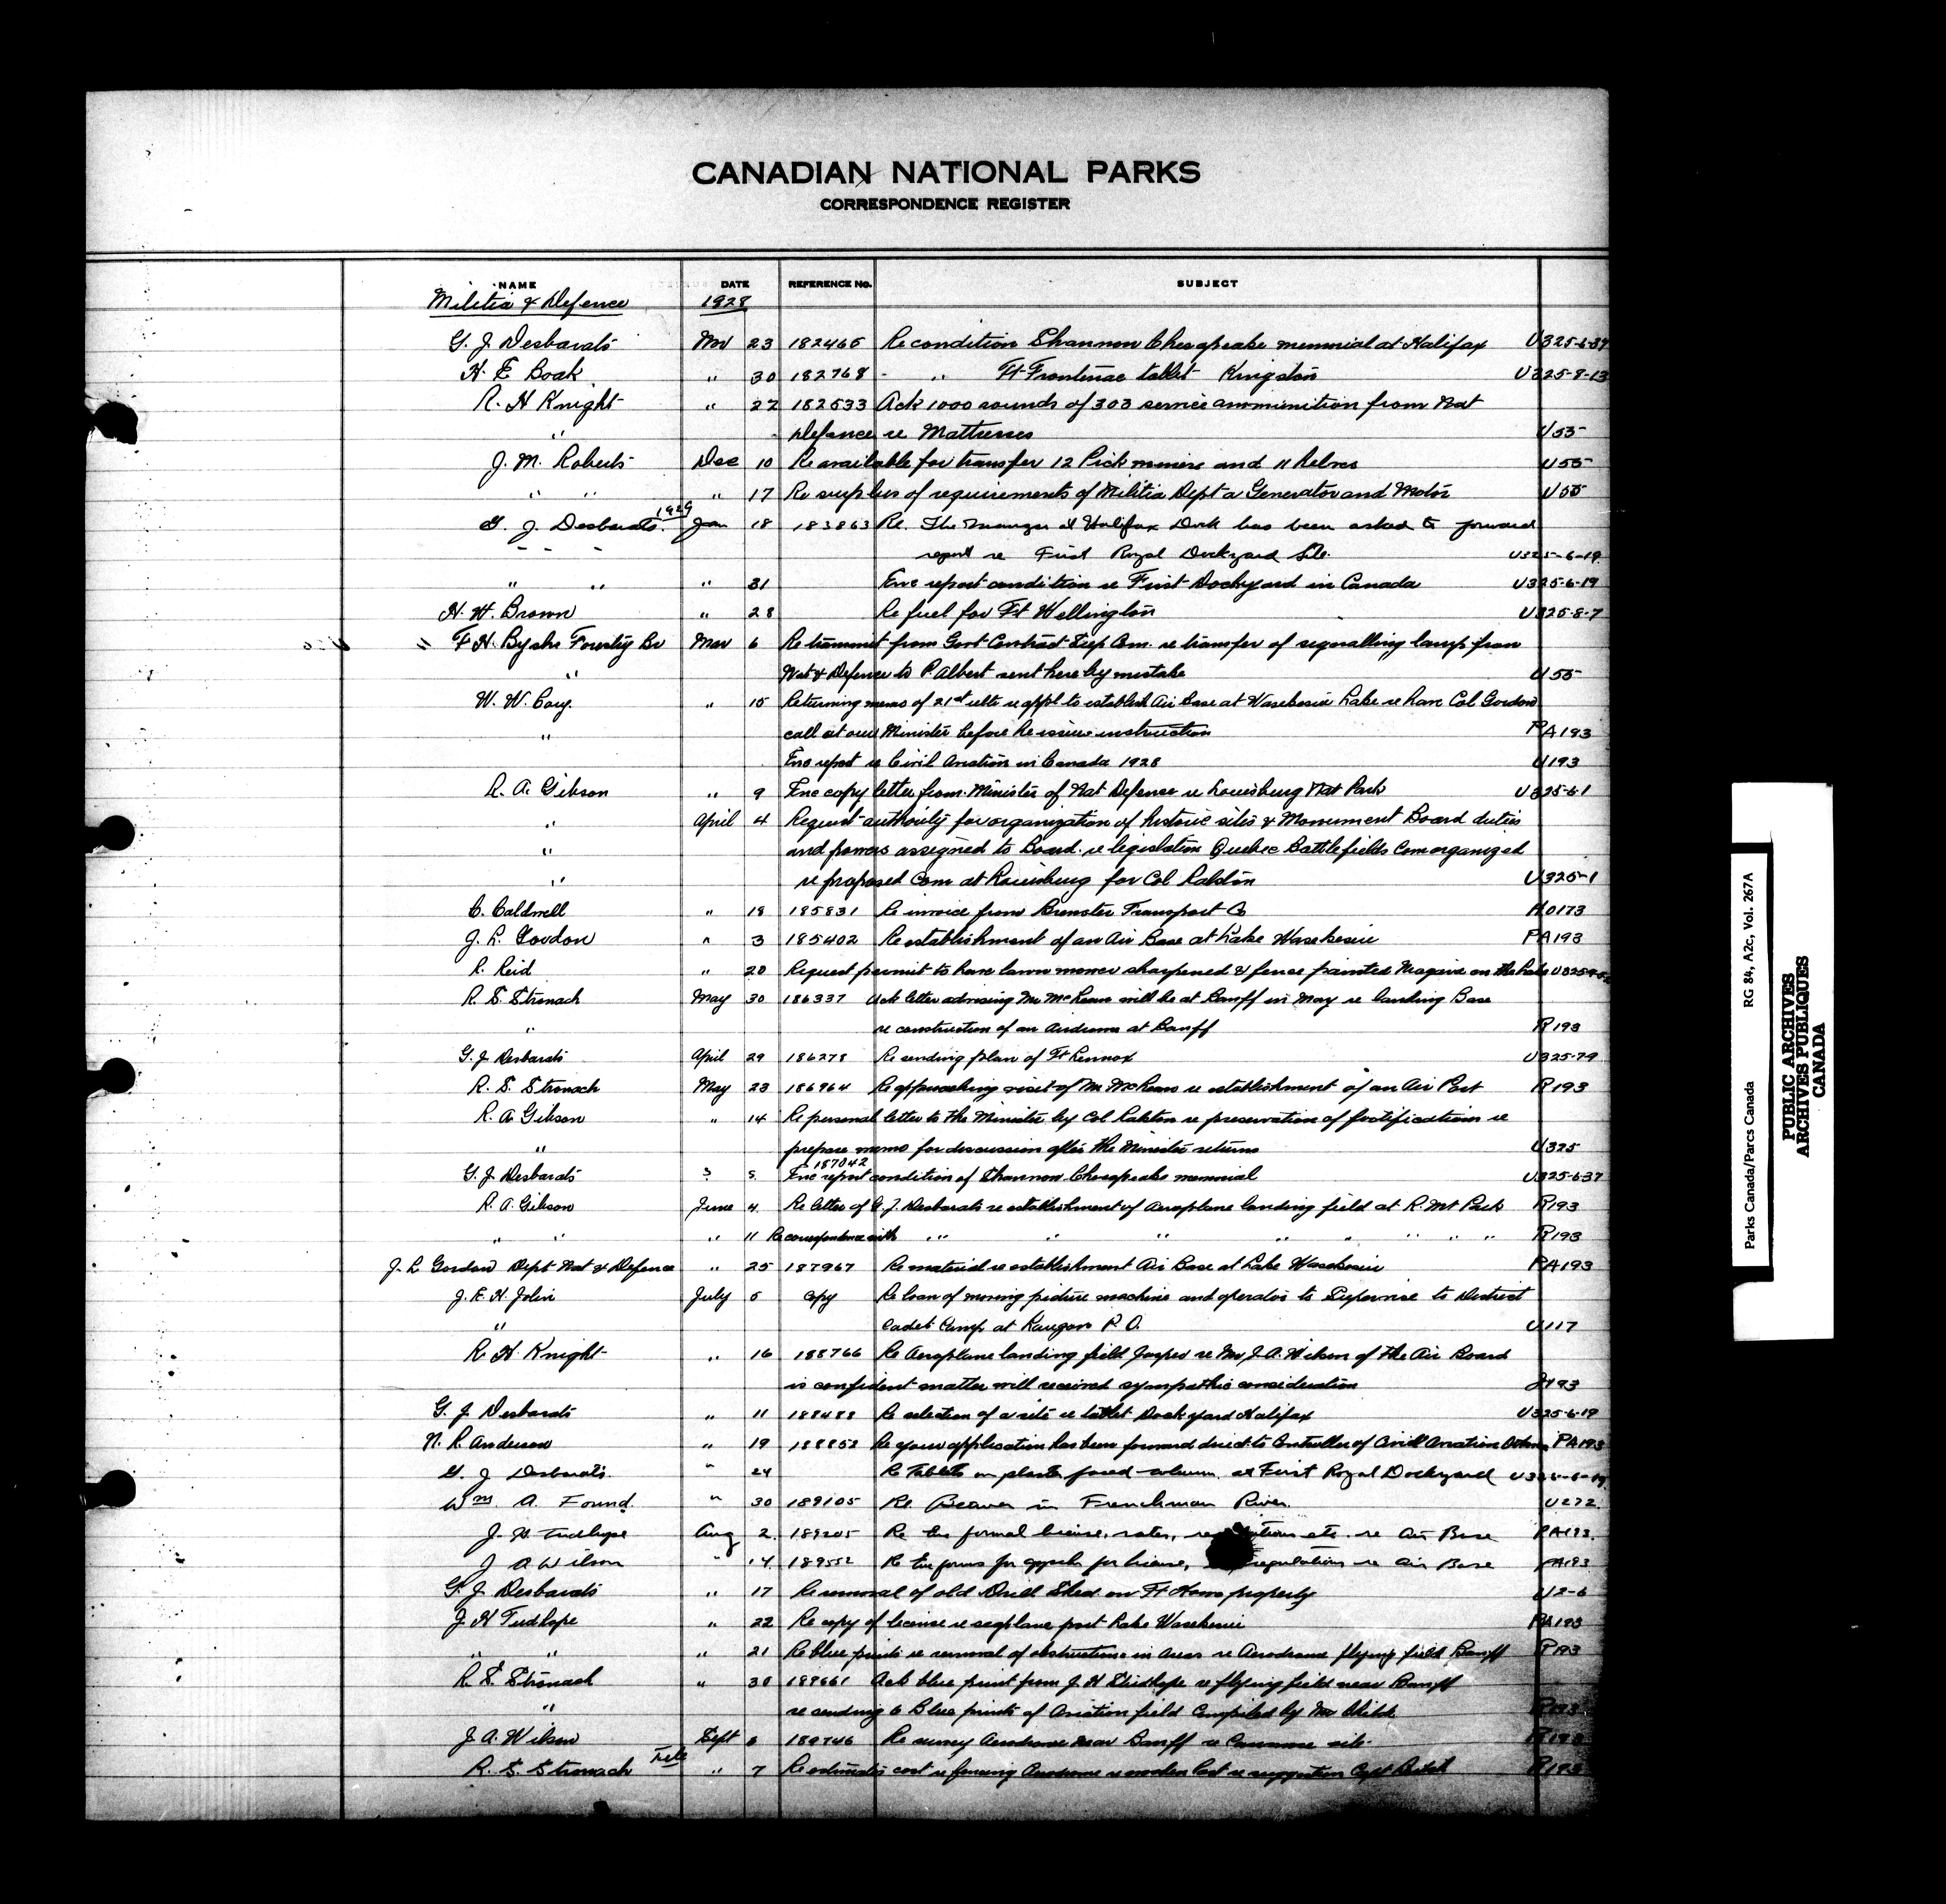 CANADIAN NATIONAL PARKS
CORRESPONDENCE REGISTER
NAME DATE REFERENCE No. SUBJECT
Militia & Defence 1928
G. J. Desbarats Nov 23 182465 Re condition Shannon Chesapeake memorial at Halifax U325-6-37
H. E Boak " 30 182768 - " Ft Frontenac tablet Kingston U325-8-13
R. H Knight " 27 182533 Ack 1000 rounds of 303 service ammunition from Nat
" Defence re Mattresses U55
J. M. Roberts Dec 10 Re available for transfer 12 Pick miners and 11 Helves U55
" " " 17 Re surplus of requirements of Militia Dept a Generator and Motor U55
G. J. Desbarats. 1929 Jan 18 183863 Re. The manager of Halifax Dock has been asked to forward
report re First Royal Dockyard Site. U325-6-19.
" " " 31 Enc report condition re First Dockyard in Canada U325-6-19
H. W. Brown " 28 Re fuel for Ft Wellington U325-8-7
" F H. Byshe Forestry Br Mar 6 Re transmit from Govt Contract Sup Com. re transfer of signalling lamp from
" Nat & Defence to P Albert sent here by mistake U55
W. W. Cory. " 15 Returning memo of 21st ulto re appl to establish Air Base at Waskesiu Lake re have Col Gordon
" call at our Minister before he issues instruction PA193
Enc report re Civil Aviation in Canada 1928 U193
R. A. Gibson " 9 Enc copy letter from Minister of Nat Defence re Louisburg Nat Park U325-6-1
" April 4 Request authority for organization of historic sites & Monument Board duties
" and powers assigned to Board. re legislation Quebec Battlefields Com organized
" re proposed Com at Louisburg for Col Ralston U325-1
C. Caldwell " 18 185831 Re invoice from Brewster Transport Co H0173
J. L. Gordon " 3 185402 Re establishment of an Air Base at Lake Waskesiu PA193
R. Reid " 20 Request permit to have lawn mower sharpened & fence painted Niagara on the Lake
R. S. Stronach May 30 186337 Ack letter advising Mr McLean will be at Banff in May re landing Base
" re construction of an Airdrome at Banff R193
G. J Desbarats April 29 186278 Re sending plan of Ft Lennox U325-7-9
R. S. Stronach May 23 186964 Re approaching visit of Mr McLean re establishment of an Air Port R193
R. A Gibson " 14 Re personal letter to the Minister by Col Ralston re preservation of fortifications re
" prepare memo for discussion after the Minister returns U325
G. J. Desbarats " 5 187042 Enc report condition of Shannon Chesapeake memorial U325-6-37
R. A. Gibson June 4. Re letter of G. J. Desbarats re establishment of Aeroplane landing field at R. Mt Park R193
" " " 11 Re correspondence with " " " " " " " " R193
J. L Gordon Dept Nat & Defence " 25 187967 Re material re establishment Air Base at Lake Waskesiu PA193
J. E. H. Jolin July 5 copy Re loan of moving picture machine and operator to Supervise to District
" Cadet Camp at P. Q. U117
R. H. Knight " 16 188766 Re Aeroplane landing field Jasper re Mr J. A. Wilson of the Air Board
is confident matter will received sympathic consideration J193
G. J Desbarats " 11 188488 Re selection of a site re tablet Dockyard Halifax U325-6-19
N. R. Anderson " 19 188852 Re your application has been forward direct to Controller of Civil Aviation Ottawa PA193
G. J Desbarats. " 24 Re Tablets on plaster faced column at First Royal Dockyard U325-6-19
Wm. A. Found. " 30 189105 Re Beaver in Frenchman River. U272.
J. H. Tudhope Aug 2. 189205 Re Enc formal license, rates, regulations etc. re Air Base PA193.
J A Wilson " 14. 189552 Re Enc forms for appeln for license, regulations re Air Base PA193
G. J. Desbarats " 17 Re removal of old Drill Shed on Ft Howe property U2-6
J H Tudhope " 22 Re copy of license re seaplane port Lake Waskesiu PA193
" " " 21 Re blue prints re removal of obstructions in areas re Aerodrome flying field Banff R193
R. S. Stronach " 30 189661 Ack blue print from J. H Tudhope re flying field near Banff
" re sending 6 Blue prints of Aviation field Compiled by Mr R193
J. A. Wilson Sept 6 189746 Re survey Aerodrome near Banff re site. R193
R. S. Stronach Tele " 7 Re estimates cost re fencing Aerodrome re cost re suggestion Capt R193
Parks Canada/Parcs Canada RG 84, A2c, Vol. 267A
PUBLIC ARCHIVES
ARCHIVES PUBLIQUES
CANADA